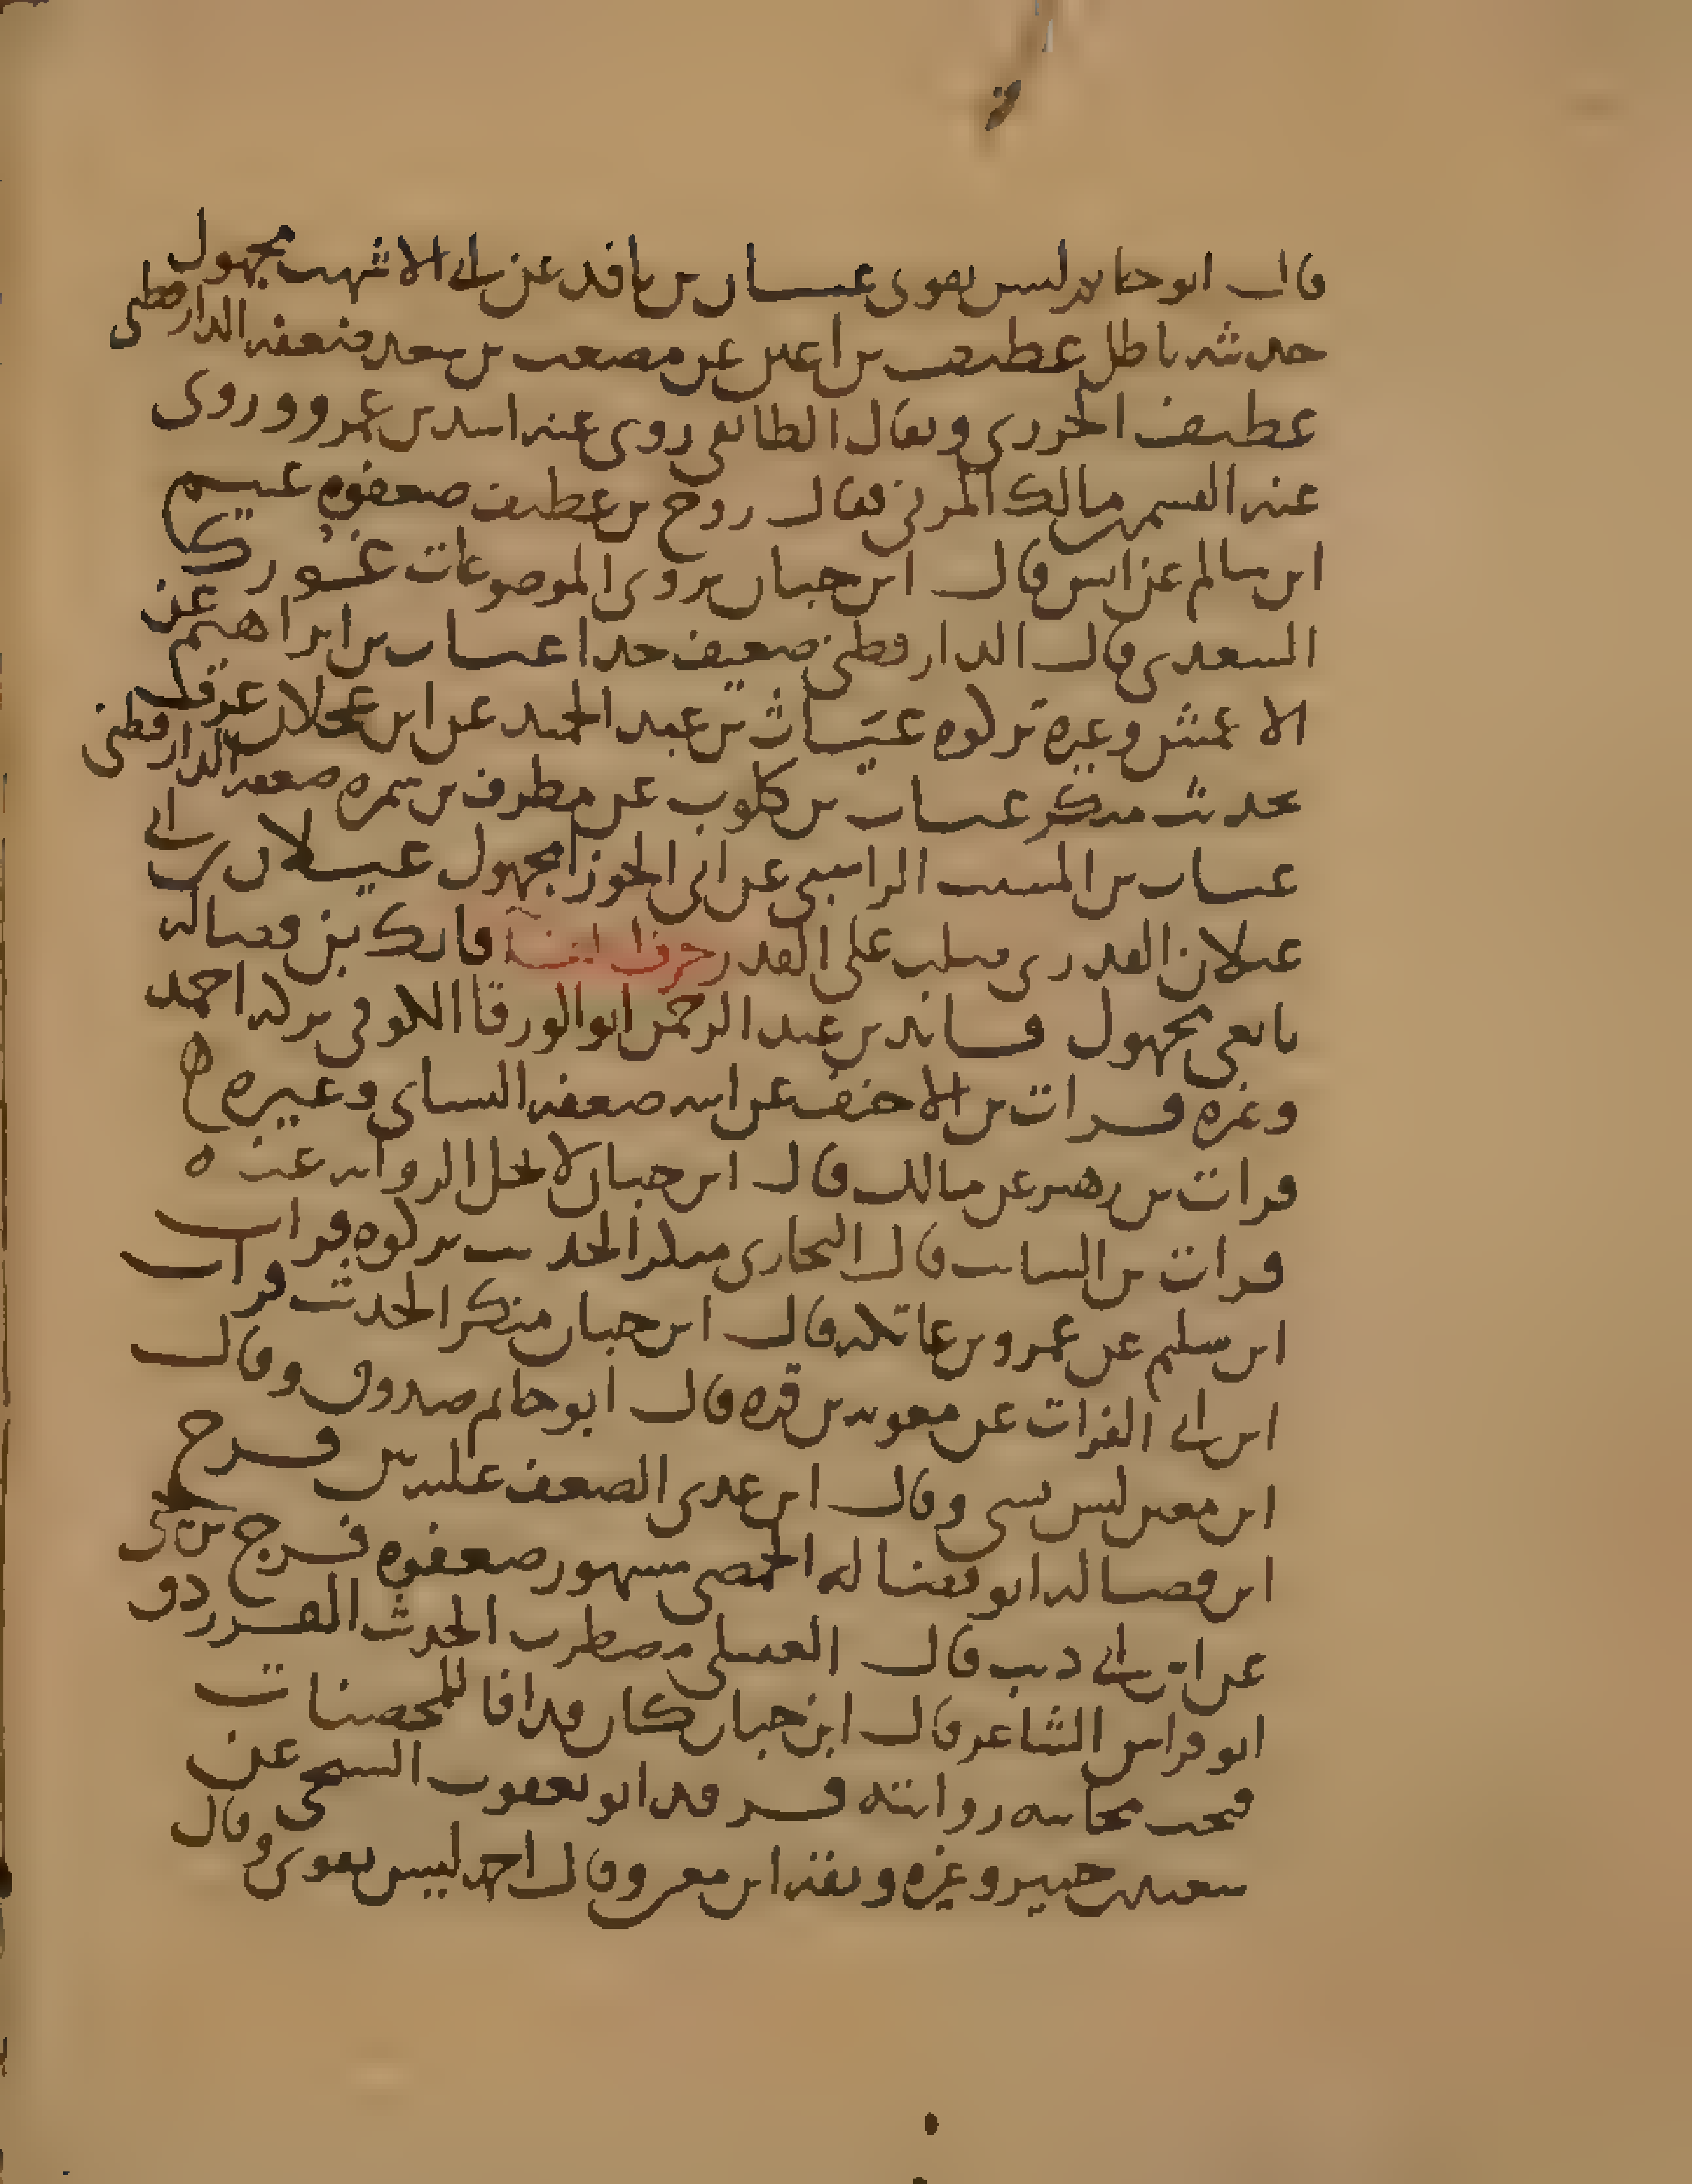 قال ابو حاتم ليس بقوى غسان بن ناقد عن ابي الاشهب مجهول
حديثه باطل غطيف بن اعين عن مصعب بن سعد ضعفه الدارقطني
غطيف الجزري ويقال الطائفي روى عنه اسد بن عمرو وروى
عنه القسم بن مالك المزني فقال روح بن غطيف ضعفوه غنيم
ابن سالم عن انس قال ابن حبان يروى الموضوعات غورك
السعدي قال الدارقطني ضعيف جدا غياث بن ابراهيم عن
الاعمش وغيره تركوه غياث بن عبد الحميد عن ابن عجلان عرف
بحديث منكر غياث بن كلوب عن مطرف بن سمره ضعفه الدارقطني
غياث بن المسيب الراسبي عن ابي الجوزا مجهول غيلان بن ابي
غيلان القدري صلب على القدر حرف الفا فاتك بن فضاله
تابعي مجهول فايد بن عبد الرحمن ابو الورقا الكوفي تركه احمد
وغيره فرات بن الاحنف عن ابيه ضعفه النساي وغيره
فرات بن زهير عن مالك قال ابن حبان لا تحل الرواية عنه ه
فرات بن السايب قال البخاري منكر الحديث تركوه فرات
ابن سليم عن عمرو بن عاتكه قال ابن حبان منكر الحديث فرات
ابن ابي الفرات عن معويه بن قره قال ابو حاتم صدوق وقال
ابن معين ليس بشي وقال ابن عدي الضعف عليه بين فرج
ابن فضاله ابو فضاله الحمصي مشهور ضعفوه فرج بن يحيى
عن ابن ابي ذيب قال العقيلي مضطرب الحديث الفرزدق
ابو فراس الشاعر قال ابن حبان كان قذافا للمحصنات
فيجب مجانبه روايته فرقد ابو يعقوب السبخي عن
سعيد بن جبير وغيره وثقه ابن معين وقال احمد ليس بقوى وقال